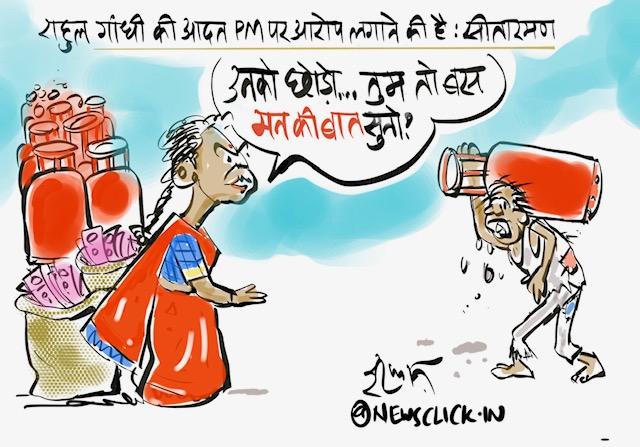 राहुल गांधी की आदत PM पर आरोप लगाने की है : सीतारमण
उनको छोड़ो... तुम तो बस
मन की बात सुनो?
@NEWSCLICK.IN